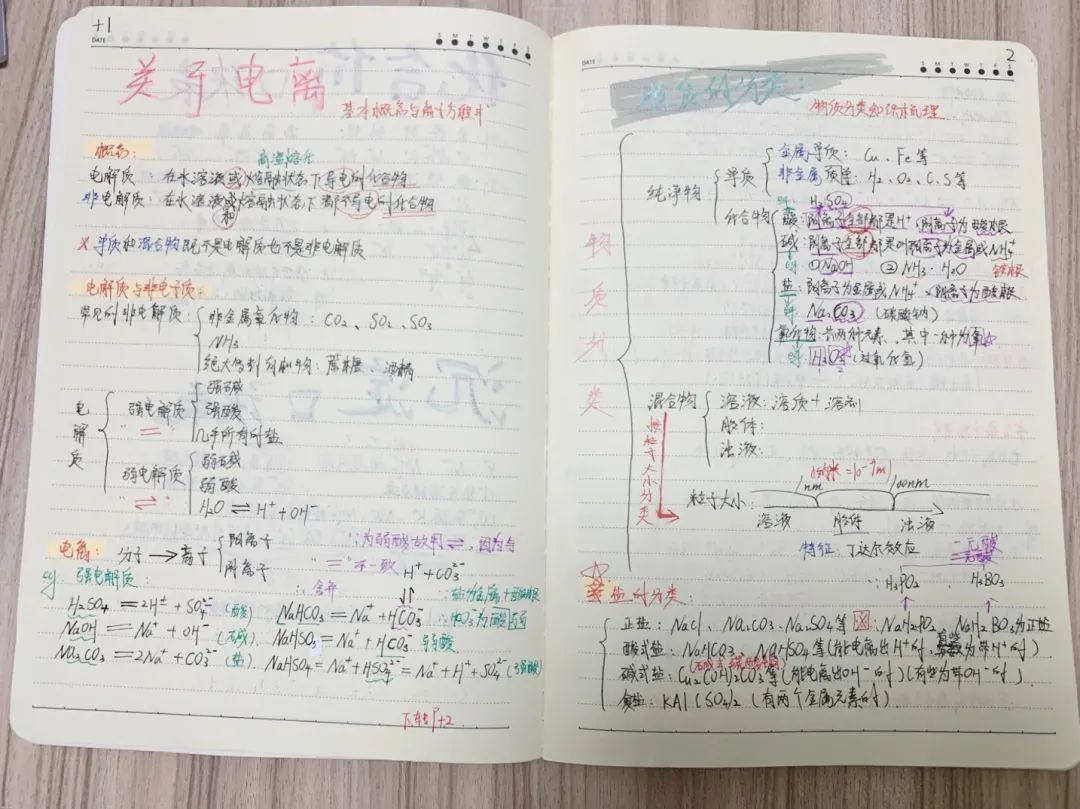 +1
DATE
S M T W T F S
关于电离
基本概念与解方程式
概念:
高温熔化
电解质:在水溶液或熔融状态下导电的化合物
非电解质:在水溶液或熔融状态下都不导电的化合物
和
× 单质和混合物既不是电解质也不是非电解质
电解质与非电子质:
常见的非电解质:
非金属氧化物:CO₂、SO₂、SO₃
NH₃
绝大多数有机物:蔗糖 酒精
电解质
强电解质 "="
强碱
强酸
几乎所有的盐
弱电解质 "⇌"
弱碱
弱酸
H₂O ⇌ H⁺+OH⁻
电离:分子→离子
阳离子
阴离子
∵为弱酸故用⇌,因为与
"="不一致 H⁺+CO₃²⁻
eg 强电解质:
∵含弱
H₂SO₄=2H⁺+SO₄²⁻(酸)
NaHCO₃=Na⁺+HCO₃⁻
NaOH=Na⁺+OH⁻(碱).
NaHSO₃=Na⁺+HCO₃⁻ 弱酸
Na₂CO₃=2Na⁺+CO₃²⁻(盐).
NaHSO₄=Na⁺+HSO₄²⁻=Na⁺+H⁺+SO₄²⁻(强酸)
下转P+2
2
DATE
S M T W T F S
物质的分类:
物质分类知识梳理
物质分类
纯净物
单质
金属单质:Cu、Fe等
非金属单质:H₂、O₂、C、S等
化合物
H₂SO₄
酸:阳离子全部都是H⁺,阴离子为酸根
碱:阴离子全部都是OH 阳离子为金属或NH₄⁺
①NaOH ②NH₃·H₂O 铵根
盐:阳离子为金属或NH₄⁺,阴离子为酸根
Na₂CO₃(碳酸钠)
氧化物:共两种元素,其中一种为氧
H₂O₂(过氧化氢)
混合物
溶液:溶质+溶剂
胶体:
浊液:
按粒子大小分类
1纳米=10⁻⁹m
1nm 100nm
粒子大小:
溶液 胶体 浊液
特征:丁达尔效应
一元酸
∵H₃PO₂ H₃BO₃
盐的分类:
正盐:NaCl、Na₂CO₃、Na₂SO₄等 ∵NaH₂PO₂、NaH₂BO₃为正盐
酸式盐:NaHCO₃、NaHSO₄等(能电离出H⁺的,为带H⁺的)
碱式盐:Cu₂(OH)₂CO₃等(能电离出OH⁻的)(有些为带OH⁻的)
复盐:KAl(SO₄)₂(有两个金属元素的)